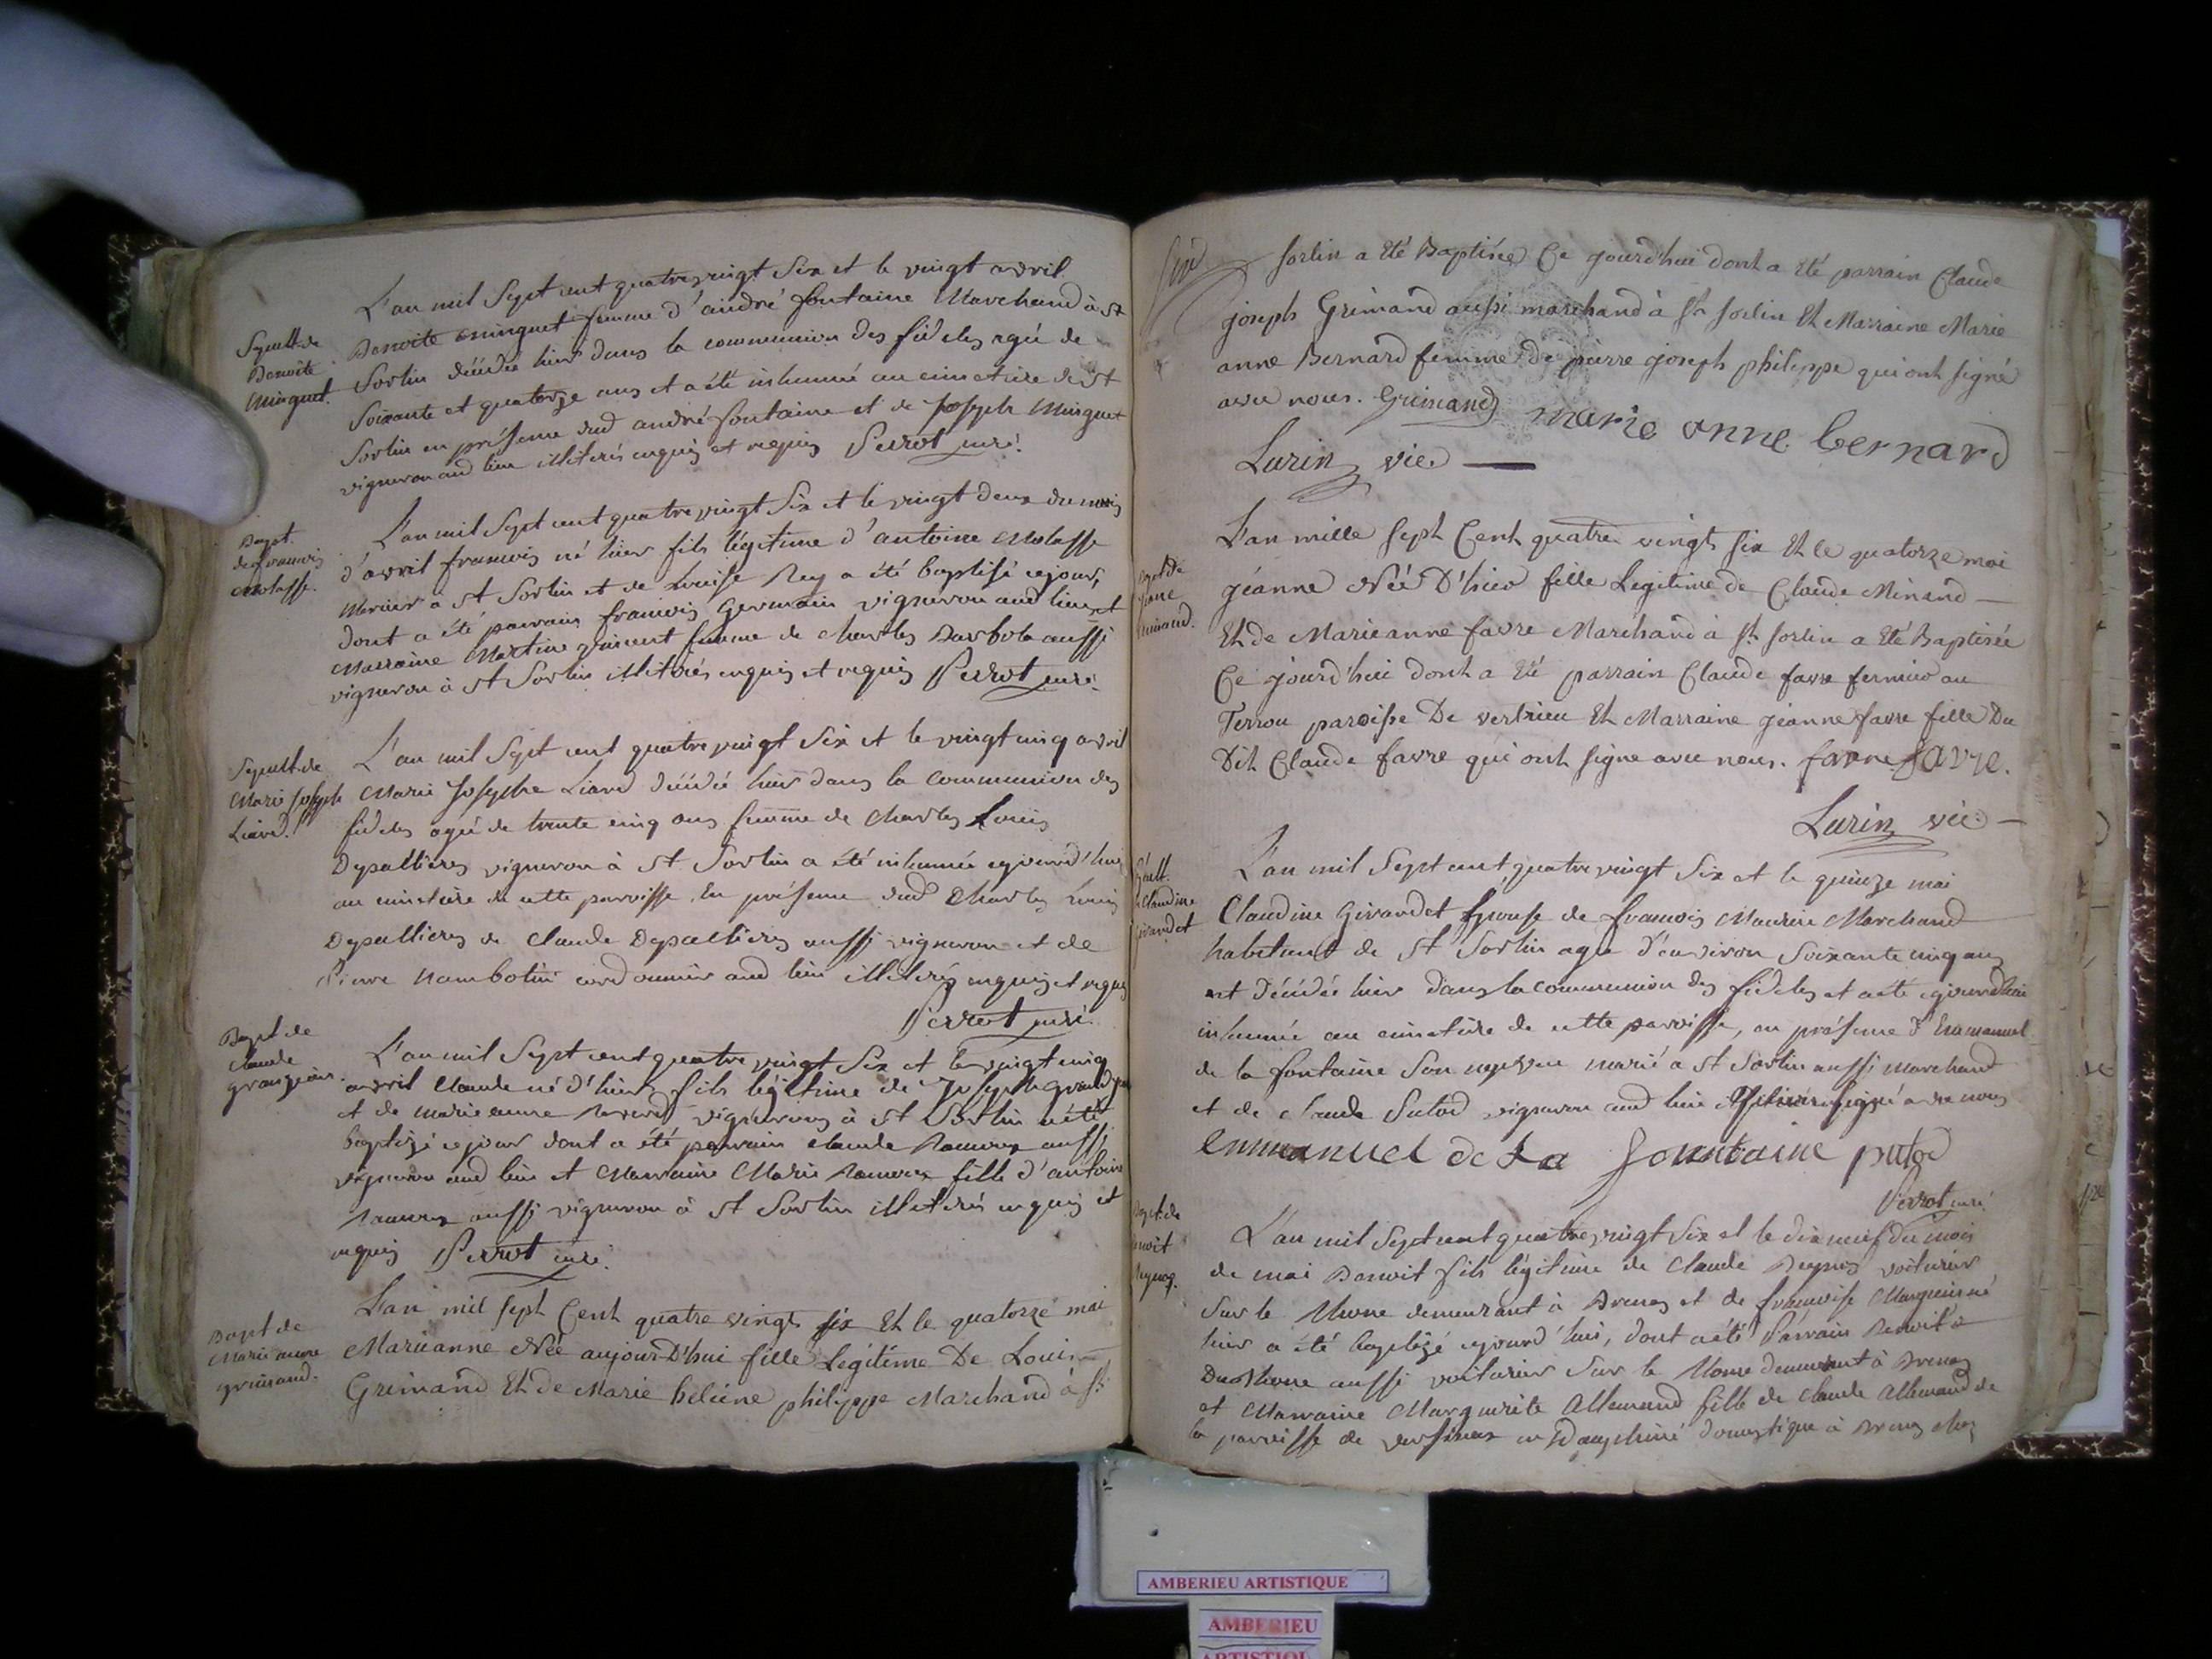 L'an mil Sept cent quatre vingt Six et le vingt avril
Sepult. de
Benoite
Minguet.
Benoite Minguet femme d'andré fontaine Marchand à St
Sorlin décédée hier dans la communion des fideles agée de
Soixante et quatorze ans et a été inhumée au cimetiere de St
Sorlin en présence dud andré fontaine et de Joseph Minguet
vigneron aud lieu illiterés enquis et requis Perrot curé.
Bapt.
de francois
Molasse.
L'an mil Sept cent quatre vingt Six et le vingt deux du mois
d'avril francois né hier fils légitime d'antoine Molasse
à St Sorlin et de Louise Rey a été baptisé ce jour,
dont a été parrain francois Germain vigneron aud lieu et
Marraine Martine femme de Charles Barbola aussi
vigneron à St Sorlin illiterés enquis et requis Perrot curé.
Sepult. de
Marie Josephe
Liard.
L'an mil Sept cent quatre vingt Six et le vingt cinq avril
Marie Josephe Liard décédée hier dans la communion des
fideles agée de trente cinq ans femme de Charles Louis
Depallieres vigneron à St Sorlin a été inhumée ce jourd'hui
au cimetiere de cette paroisse en présence dud Charles Louis
Depallieres de Claude Depallieres aussi vigneron et de
Pierre cordonnier aud lieu illiterés enquis et requis
Perrot curé.
Bapt de
Claude
grangean.
L'an mil Sept cent quatre vingt Six et le vingt cinq
avril Claude né d'hier fils légitime de Joseph
et de marie anne vignerons à St Sorlin a été
baptizé ce jour dont a été parrain Claude aussi
vigneron aud lieu et Marraine Marie fille d'antoine
aussi vigneron à St Sorlin illiterés enquis et
requis Perrot curé.
Bapt de
Marie anne
grimand.
L'an mil sept Cent quatre vingts six Et le quatorze mai
Marieanne Née aujourD'hui fille Legitime De Louis
Grimand Et de Marie heleine philippe Marchand à St
sorlin a Eté Baptisée Ce jourd'hui dont a Eté parrain Claude
joseph Grimand aussi marchand à St sorlin Et Marraine Marie
anne Bernard femme de pierre joseph philippe qui ont signé
avec nous. Grimand marie anne bernard
Lurin vic.
L'an mille sept Cent quatre vingt six Et le quatorze mai
Bapt de
jeanne
jéanne Née D'hier fille Legitime de Claude
Et de Marieanne favre Marchand à St sorlin a Eté Baptisée
Ce jourd'hui dont a Eté parrain Claude favre fermier au
Terrou paroisse De vertrieu Et Marraine jéanne favre fille Du
Dit Claude favre qui ont signe avec nous. favre favre.
Lurin vic.
L'an mil Sept cent quatre vingt Six et le quinze mai
Claudine Girandet Epouse de francois Maurin Marchand
habitant de St Sorlin agée d'environ Soixante cinq ans
est décédée hier dans la communion des fideles et a été ce jourd'hui
inhumée au cimetiere de cette paroisse, en présence d'Emmanuel
de la fontaine Son neveu marié a St Sorlin aussi marchand
et de Claude Putod vigneron aud lieu signé avec nous
enmanuel de La fountaine putod
Perrot curé
L'an mil Sept cent quatre vingt Six et le dix neuf du mois
de mai Benoit fils légitime de Claude voiturier
Sur le Rhone demeurant à Brenas et de francoise né
hier a été baptizé ce jourd'hui, dont a été Parrain Benoit
aussi voiturier Sur le Rhone demeurant à Brenas
et Marraine Marguerite Allemand fille de Claude Allemand de
la paroisse de en Dauphiné domestique à Brenas chez
AMBERIEU ARTISTIQUE
AMBERIEU
ARTISTIQUE